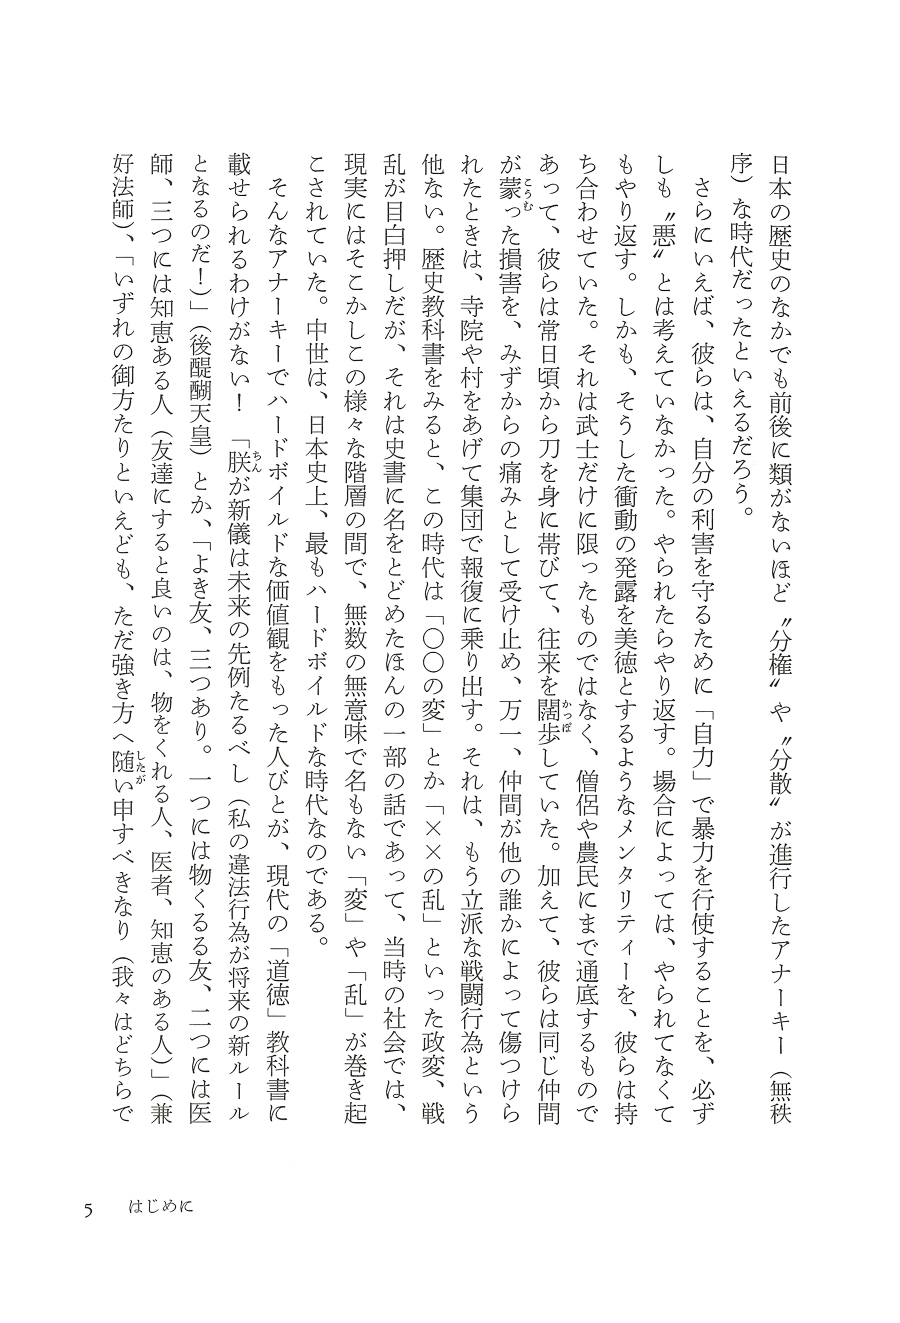 日本の歴史のなかでも前後に類がないほど〝分権〟や〝分散〟が進行したアナーキー（無秩
序）な時代だったといえるだろう。
さらにいえば、彼らは、自分の利害を守るために「自力」で暴力を行使することを、必ず
しも〝悪〟とは考えていなかった。やられたらやり返す。場合によっては、やられてなくて
もやり返す。しかも、そうした衝動の発露を美徳とするようなメンタリティーを、彼らは持
ち合わせていた。それは武士だけに限ったものではなく、僧侶や農民にまで通底するもので
あって、彼らは常日頃から刀を身に帯びて、往来を闊歩していた。加えて、彼らは同じ仲間
が蒙った損害を、みずからの痛みとして受け止め、万一、仲間が他の誰かによって傷つけら
れたときは、寺院や村をあげて集団で報復に乗り出す。それは、もう立派な戦闘行為という
他ない。歴史教科書をみると、この時代は「〇〇の変」とか「××の乱」といった政変、戦
乱が目白押しだが、それは史書に名をとどめたほんの一部の話であって、当時の社会では、
現実にはそこかしこの様々な階層の間で、無数の無意味で名もない「変」や「乱」が巻き起
こされていた。中世は、日本史上、最もハードボイルドな時代なのである。
そんなアナーキーでハードボイルドな価値観をもった人びとが、現代の「道徳」教科書に
載せられるわけがない！　「朕が新儀は未来の先例たるべし（私の違法行為が将来の新ルール
となるのだ！）」（後醍醐天皇）とか、「よき友、三つあり。一つには物くるる友、二つには医
師、三つには知恵ある人（友達にすると良いのは、物をくれる人、医者、知恵のある人）」（兼
好法師）、「いずれの御方たりといえども、ただ強き方へ随い申すべきなり（我々はどちらで
5　はじめに